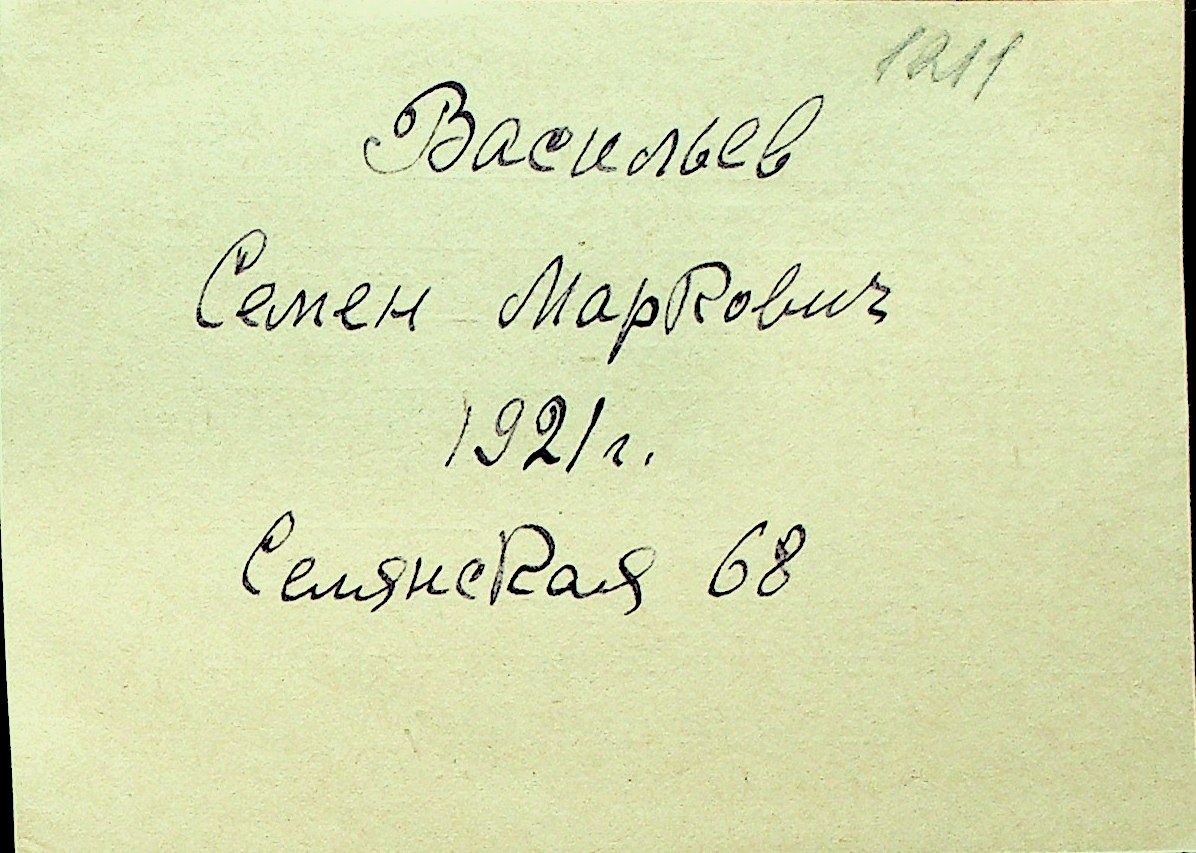 1211
Васильев
Семен Маркович
1921 г.
Селянская 68